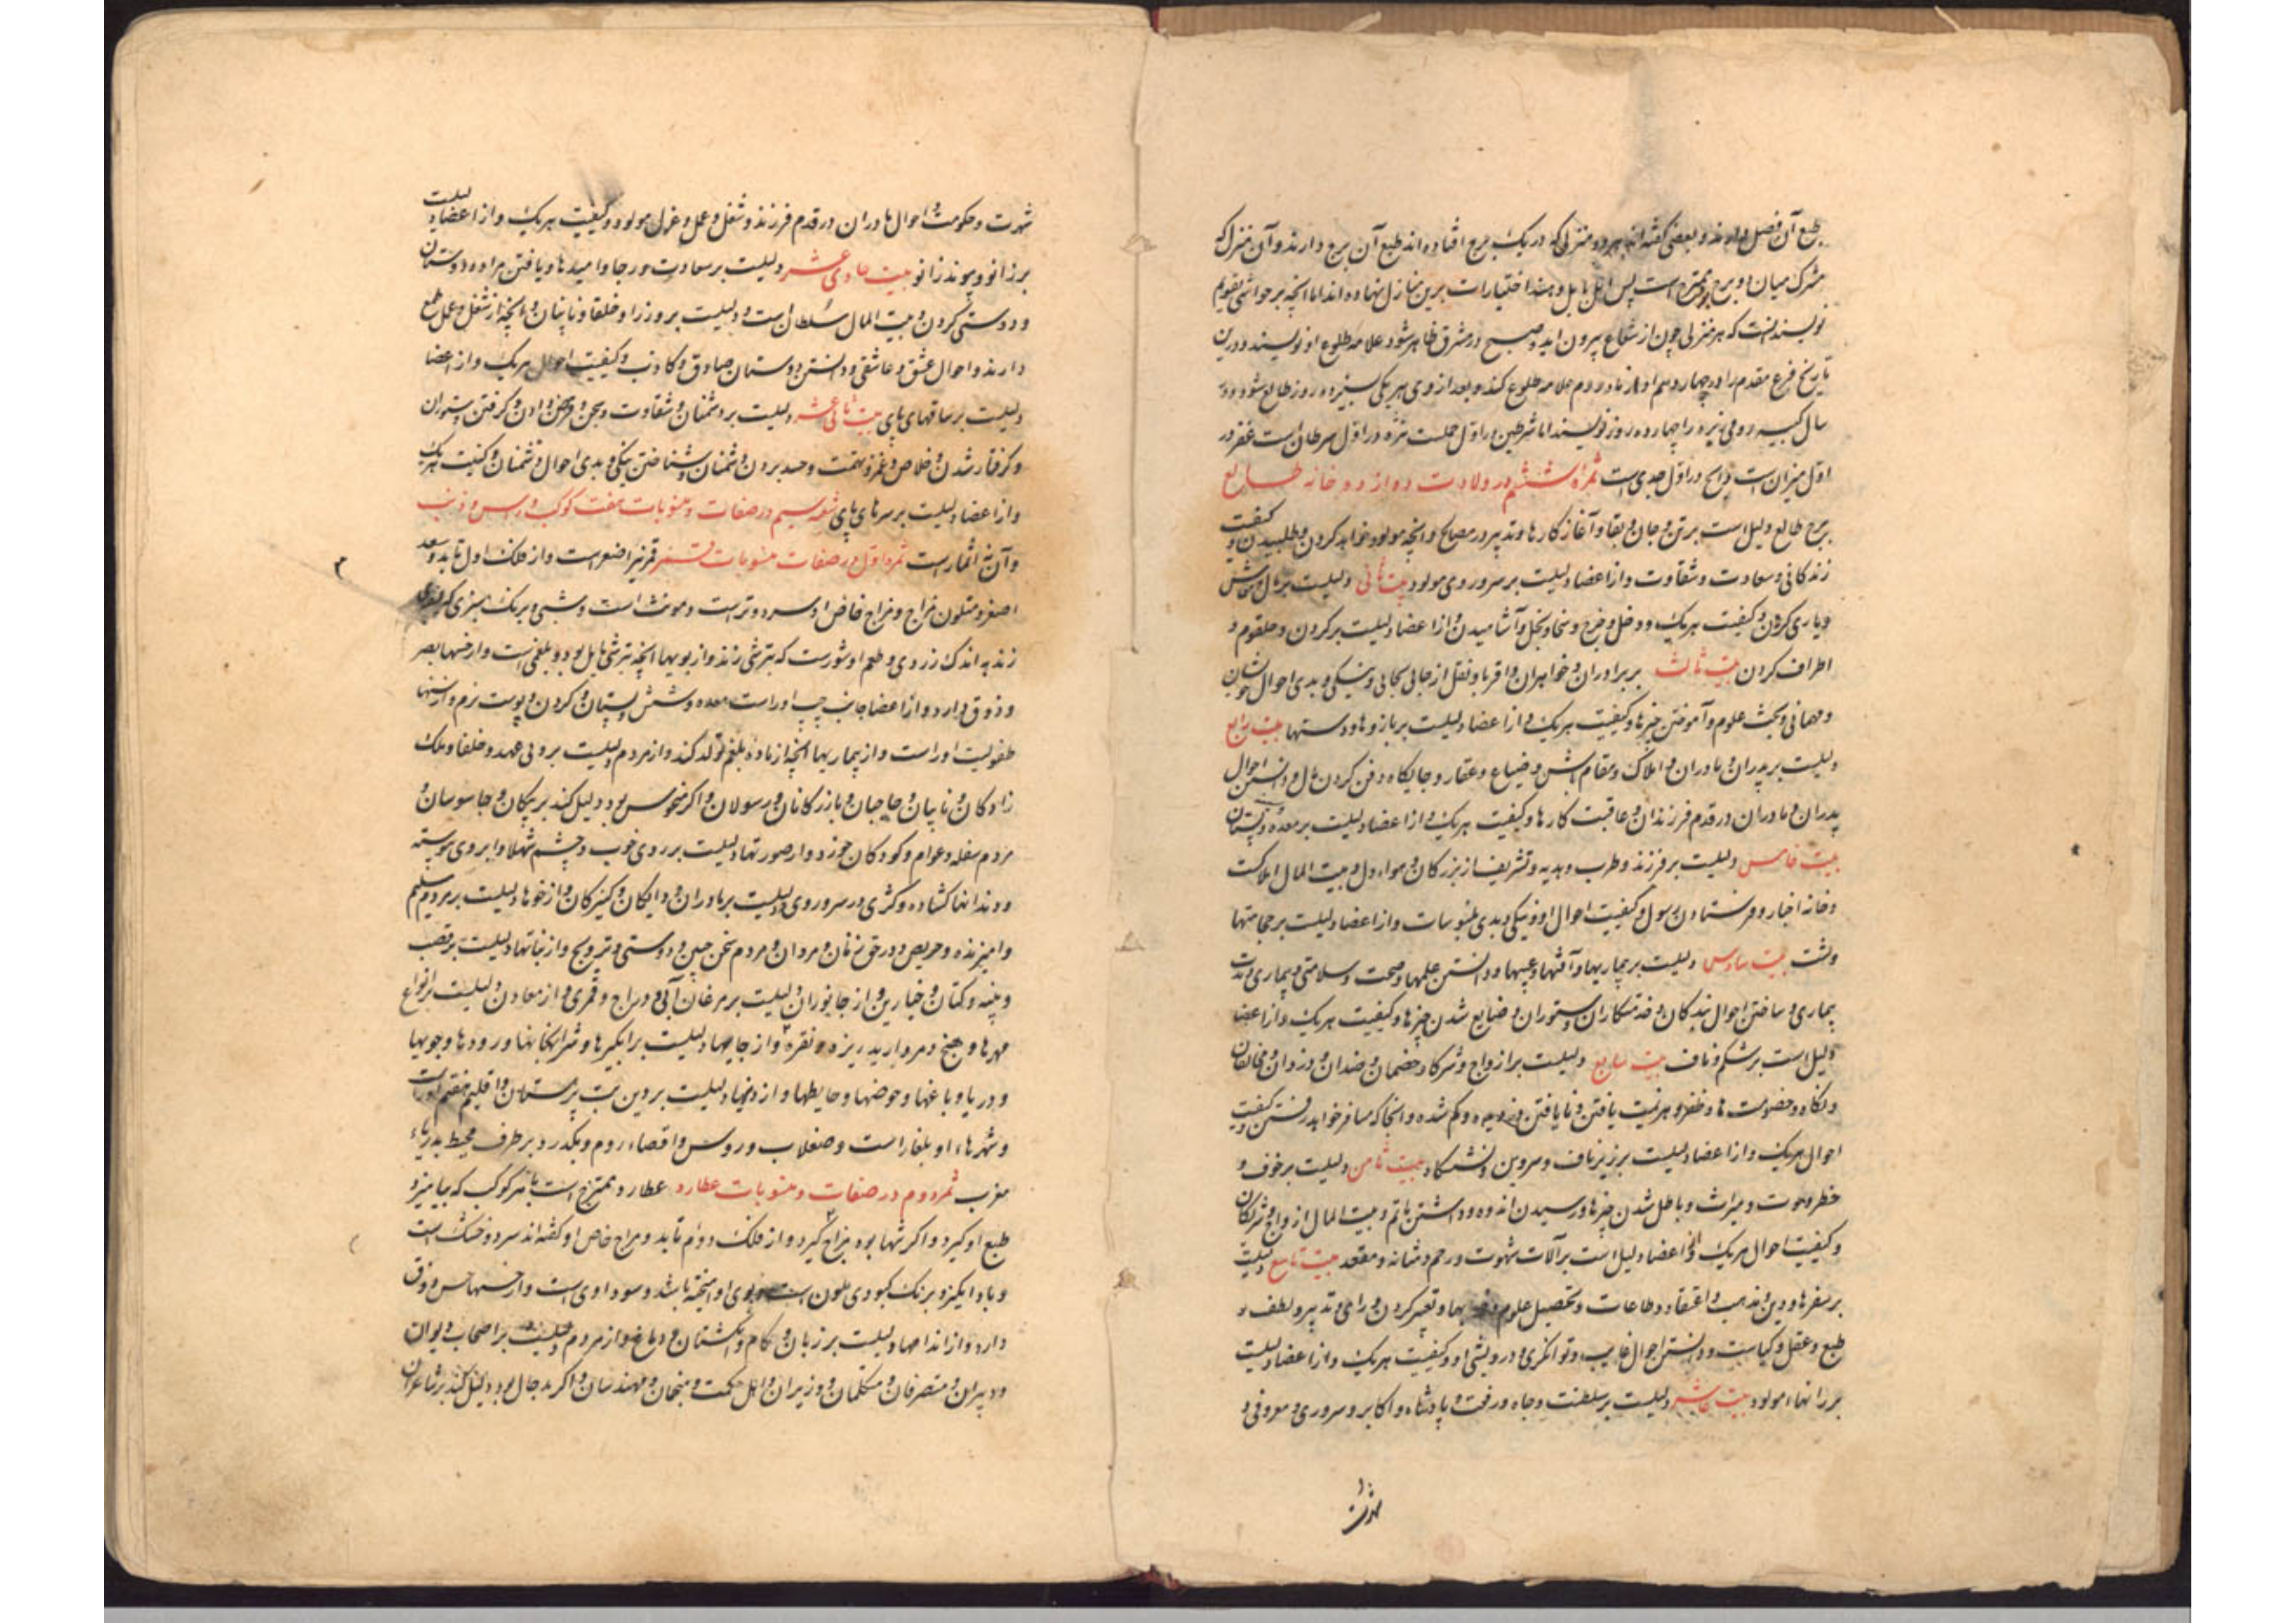 طبع آن فصل دارند و بعضی گفته‌اند هر دو منزلی که در یک برج افتاده‌اند طبع آن برج دارند و آن منزل که
مشترک میان دو برج است پس اهل بابل و هند اختیارات برین منازل نهاده‌اند اما آنچه بر حواشی تقویم
نویسند آنست که هر منزلی چون از شعاع بیرون اید و صبح در مشرق ظاهر شود علامه طلوع او نویسند و درین
تاریخ فرع مقدم را در چهاردهم اذار ماه روم طلوع کند و بعد از وی هر یکی بسیزده روز طالع شود و در
سال کبیسه رومی را چهارده روز نویسند اما شرطین در اول حملست نثره در اول سرطان است غفر در
اول میزان است ذابح در اول جدی است ثمره ششم در ولادت دوازده خانه طالع
برج طالع دلیل است بر تن و جان و بقا و آغاز کارها و تدبیر در مصالح و آنچه مولود خواهد کردن و طلبیدن و کیفیت
زندگانی و سعادت و شقاوت و از اعضا دلیلست بر سر و روی مولود بیت ثانی دلیلست بر مال و معاش
و یاری کردن و کیفیت هر یک و دخل و خرج و سخا و بخل و آشامیدن و از اعضا دلیلست بر گردن و حلقوم و
اطراف گردن بیت ثالث بر برادران و خواهران و اقربا و نقل از جائی بجائی و نیکی و بدی احوال خویشان
و مهمانی و بحث علوم و آموختن چیزها و کیفیت هر یک و از اعضا دلیلست بر بازوها و دستها بیت رابع
دلیلست بر پدران و مادران و املاک و مقام و ضیاع و عقار و جایگاه دفن کردن مال و دانستن احوال
پدران و مادران در قدم فرزندان و عاقبت کارها و کیفیت هر یک و از اعضا دلیلست بر معده و پستان
بیت خامس دلیلست بر فرزند و طرب و هدیه و تشریف از بزرگان و هواء دل و بیت المال املاکت
و خانه اخبار و فرستادن رسول و کیفیت احوال او و نیکی و بدی ملبوسات و از اعضا دلیلست بر حجامتها
و پشت بیت سادس دلیلست بر بیماریها و آفتها و عیبها و دانستن علمها و صحت و سلامتی و بیماری و مدت
بیماری و ساختن احوال بندگان و خدمتکاران و ستوران و ضایع شدن چیزها و کیفیت هر یک و از اعضا
دلیل است بر شکم و ناف بیت سابع دلیلست بر ازواج و شرکا و خصمان و ضدان و دزدان و مخالفان
و نکاح و خصومت‌ها و ظفر و هزیمت یافتن و نایافتن دزدیده و گم شده و آنجا که مسافر خواهد رفتن و کیفیت
احوال هر یک و از اعضا دلیلست بر زیر ناف و سرین و نشستگاه بیت ثامن دلیلست بر خوف و
خطر و موت و میراث و باطل شدن چیزها و رسیدن اندوه و داشتن ماتم و بیت المال ازواج و شریکان
و کیفیت احوال هر یک و از اعضا دلیل است بر آلات شهوت و رحم و مثانه و مقعد بیت تاسع دلیلست
بر سفرها و دین و مذهب و اعتقاد و طاعات و تحصیل علوم و خوابها و تعبیر کردن و رای و تدبیر و لطف و
طبع و عقل و کیاست و دانستن احوال غایب و توانگری و درویشی او و کیفیت هر یک و از اعضا دلیلست
بر رانهاء مولود بیت عاشر دلیلست بر سلطنت و جاه و رفعت و پادشاه و اکابر و سروری و معروفی و
شهرت
شهرت و حکومت و احوال مادران در قدم فرزند و شغل و عمل و عزل مولود و کیفیت هر یک و از اعضا دلیلست
بر زانو و پیوند زانو بیت حادی عشر دلیلست بر سعادت و رجا و امیدها و یافتن مراد و دوستان
و دوستی کردن و بیت المال سلطان است و دلیلست بر وزرا و خلفا و نایبان و آنچه از شغل و عمل طمع
دارند و احوال عشق و عاشقی و دانستن دوستان صادق و کاذب و کیفیت احوال هر یک و از اعضا
دلیلست بر ساقهای پای بیت ثانی عشر دلیلست بر دشمنان و شقاوت و سجن و قرض دادن و گرفتن و ستوران
و گرفتار شدن و خلاص و غمز و تهمت و حسد بردن و دشمنان و شناختن نیکی و بدی احوال دشمنان و کیفیت هر یک
و از اعضا دلیلست بر سرهای پای شعبه سیم در صفات و منسوبات هفت کوکب و راس و ذنب
و آن نه اثمار است ثمره اول در صفات منسوبات قمر قمر نیر اصغر است و از فلک اول تابد و سعد
اصغر و متلون مزاج و مزاج خاص او سرد و تر است و مونث است و شبی و برنگ سبزی که بزردی
زند به اندک زردی و طعم او شورست که بترشی زند و از بویها آنچه بترشی مایل بود و بلغمی است و از حسها بصر
و ذوق دارد و از اعضا جانب چپ او راست معده و شش و پستان و گردن و پوست نرم و از سنها
طفولیت او راست و از بیماریها آنچه از ماده بلغم تولد کند و از مردم دلیلست بر ولی عهد و خلفا و ملک
زادگان و نایبان و حاجبان و بازرگانان و رسولان و اگر منحوس بود دلیل کند بر پیکان و جاسوسان و
مردم سفله و عوام و کودکان خورد و از صورتها دلیلست بر روی خوب و چشم شهلا و ابروی پیوسته
و دندانها گشاده و کژی در سر و روی و دلیلست بر مادران و دایگان و کنیزکان و از خوها دلیلست بر مردم سلیم
و امیزنده و حریص و در حق زنان و مردان و مردم سخن چین و دوستی و ترویج و از نباتها دلیلست بر قصب
و پنبه و کتان و خیارین و از جانوران دلیلست بر مرغان آبی و دراج و قمری و از معادن دلیلست بر انواع
مهرها و مروارید ریزه و نقره و از جایها دلیلست بر آبگیرها و شرابخانها و رودها و جویها
و دریا و باغها و حوضها و حایطها و از دینها دلیلست بر دین بت پرستان و اقلیم هفتم او راست
و شهرهاء او بلغار است و صقلاب و روس و اقصاء روم و بگذرد بر طرف محیط بدریاء
مغرب ثمره دوم در صفات و منسوبات عطارد عطارد ممتزج است با هر کوکب که بیامیزد
طبع او گیرد و اگر تنها بود مزاج گیرد و از فلک دوم تابد و مزاج خاص او گفته‌اند سرد و خشک است
و باد انگیز و برنگ کبودی ملون است و بوی او آمیخته باشد و سوداوی است و از حسها حس ذوق
دارد و از اندامها دلیلست بر زبان و کام و انگشتان و دماغ و از مردم دلیلست بر اصحاب دیوان
و دبیران و متصرفان و متکلمان و وزیران و اهل حکمت و منجمان و مهندسان و اگر بد حال بود دلیل کند بر شاعران